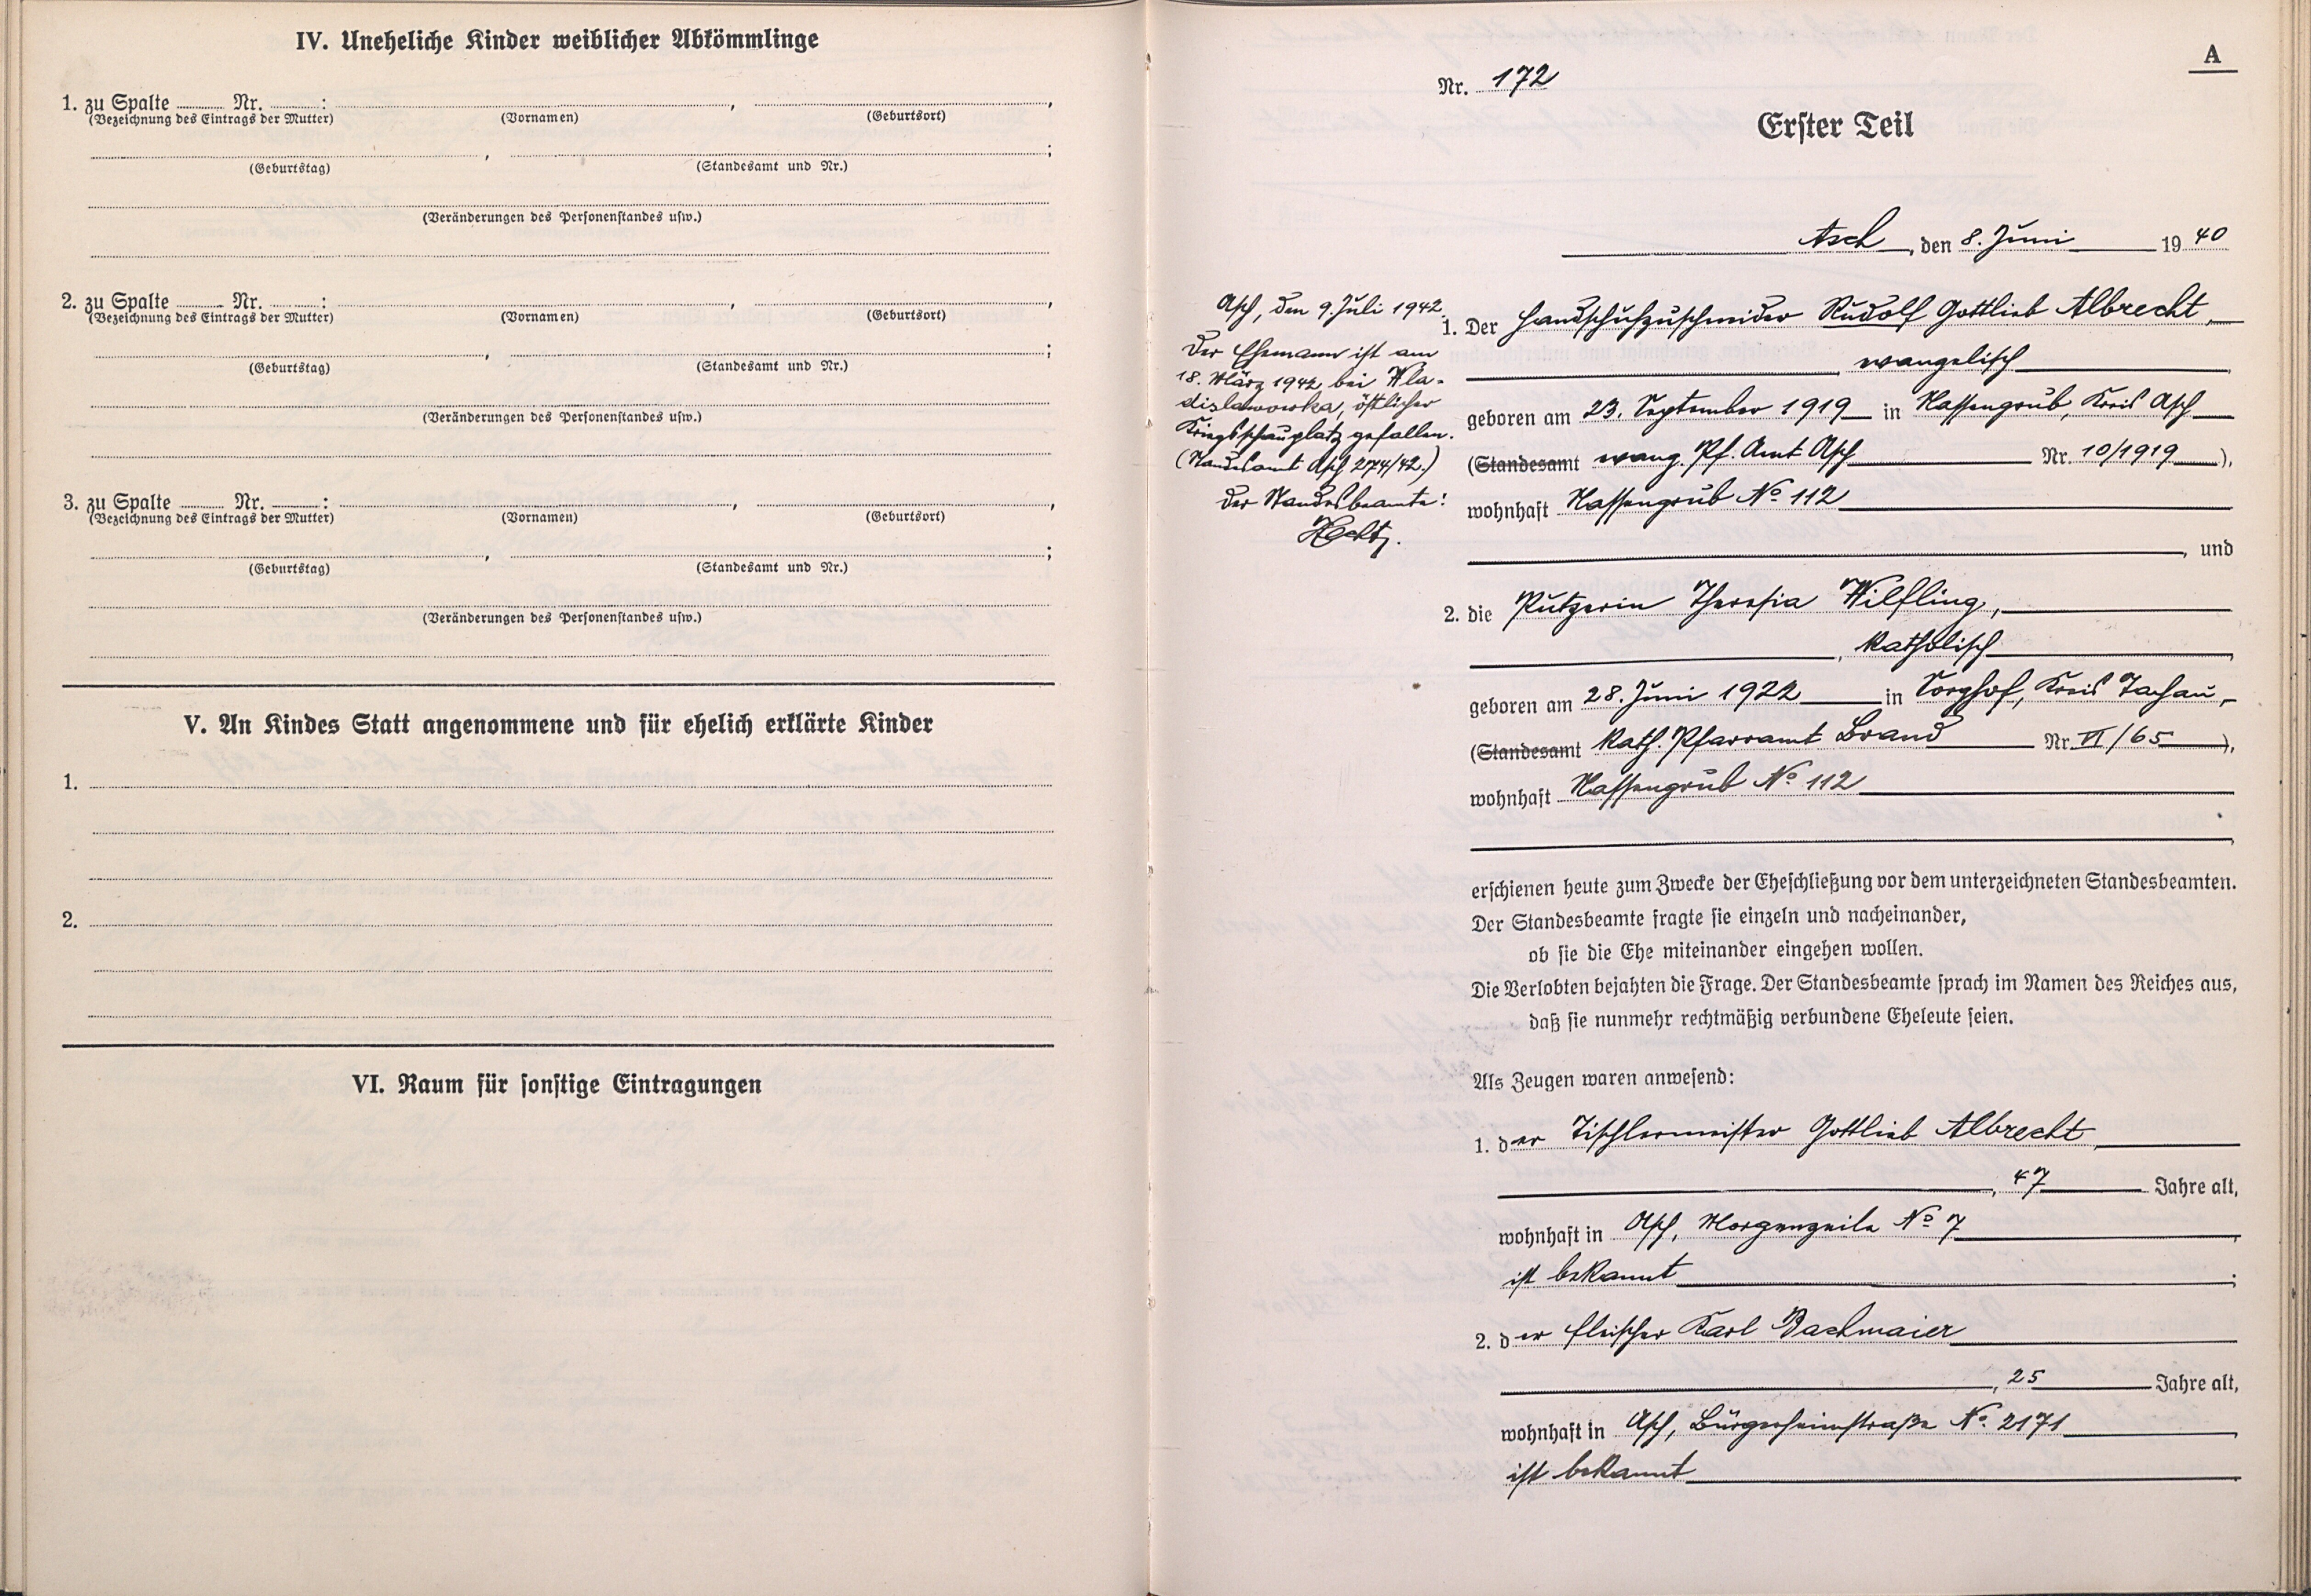 IV. Uneheliche Kinder weiblicher Abkömmlinge
1. zu Spalte ........ Nr. ........: ........, ........,
(Bezeichnung des Eintrags der Mutter) (Vornamen) (Geburtsort)
........, ........;
(Geburtstag) (Standesamt und Nr.)
(Veränderungen des Personenstandes usw.)
2. zu Spalte ........ Nr. ........: ........, ........,
(Bezeichnung des Eintrags der Mutter) (Vornamen) (Geburtsort)
........, ........;
(Geburtstag) (Standesamt und Nr.)
(Veränderungen des Personenstandes usw.)
3. zu Spalte ........ Nr. ........: ........, ........,
(Bezeichnung des Eintrags der Mutter) (Vornamen) (Geburtsort)
........, ........;
(Geburtstag) (Standesamt und Nr.)
(Veränderungen des Personenstandes usw.)
V. An Kindes Statt angenommene und für ehelich erklärte Kinder
1.
2.
VI. Raum für sonstige Eintragungen
A
Nr. 172
Erster Teil
Asch, den 8. Juni 1940
Asch, den 9. Juli 1942.
Der Ehemann ist am
18. März 1942 bei Wla-
dislawowka, östlicher
Kriegsschauplatz gefallen.
(Standesamt Asch 274/42.)
Der Standesbeamte:
1. Der Handschuhzuschneider Rudolf Gottlieb Albrecht,
evangelisch
geboren am 23. September 1919 in Nassengrub, Kreis Asch
(Standesamt evang. Pf. Amt Asch Nr. 10/1919),
wohnhaft Nassengrub No 112
, und
2. die Putzerin Theresia Wilfling,
, katholisch
geboren am 28. Juni 1922 in Sorghof, Kreis Tachau,
(Standesamt kath. Pfarramt Brand Nr. VI/65),
wohnhaft Nassengrub No 112
erschienen heute zum Zwecke der Eheschließung vor dem unterzeichneten Standesbeamten.
Der Standesbeamte fragte sie einzeln und nacheinander,
ob sie die Ehe miteinander eingehen wollen.
Die Verlobten bejahten die Frage. Der Standesbeamte sprach im Namen des Reiches aus,
daß sie nunmehr rechtmäßig verbundene Eheleute seien.
Als Zeugen waren anwesend:
1. der Tischlermeister Gottlieb Albrecht,
, 47 Jahre alt,
wohnhaft in Asch, Morgenzeile No 7
ist bekannt;
2. der Fleischer Karl Bachmaier
, 25 Jahre alt,
wohnhaft in Asch, Bürgerheimstraße No. 2171
ist bekannt